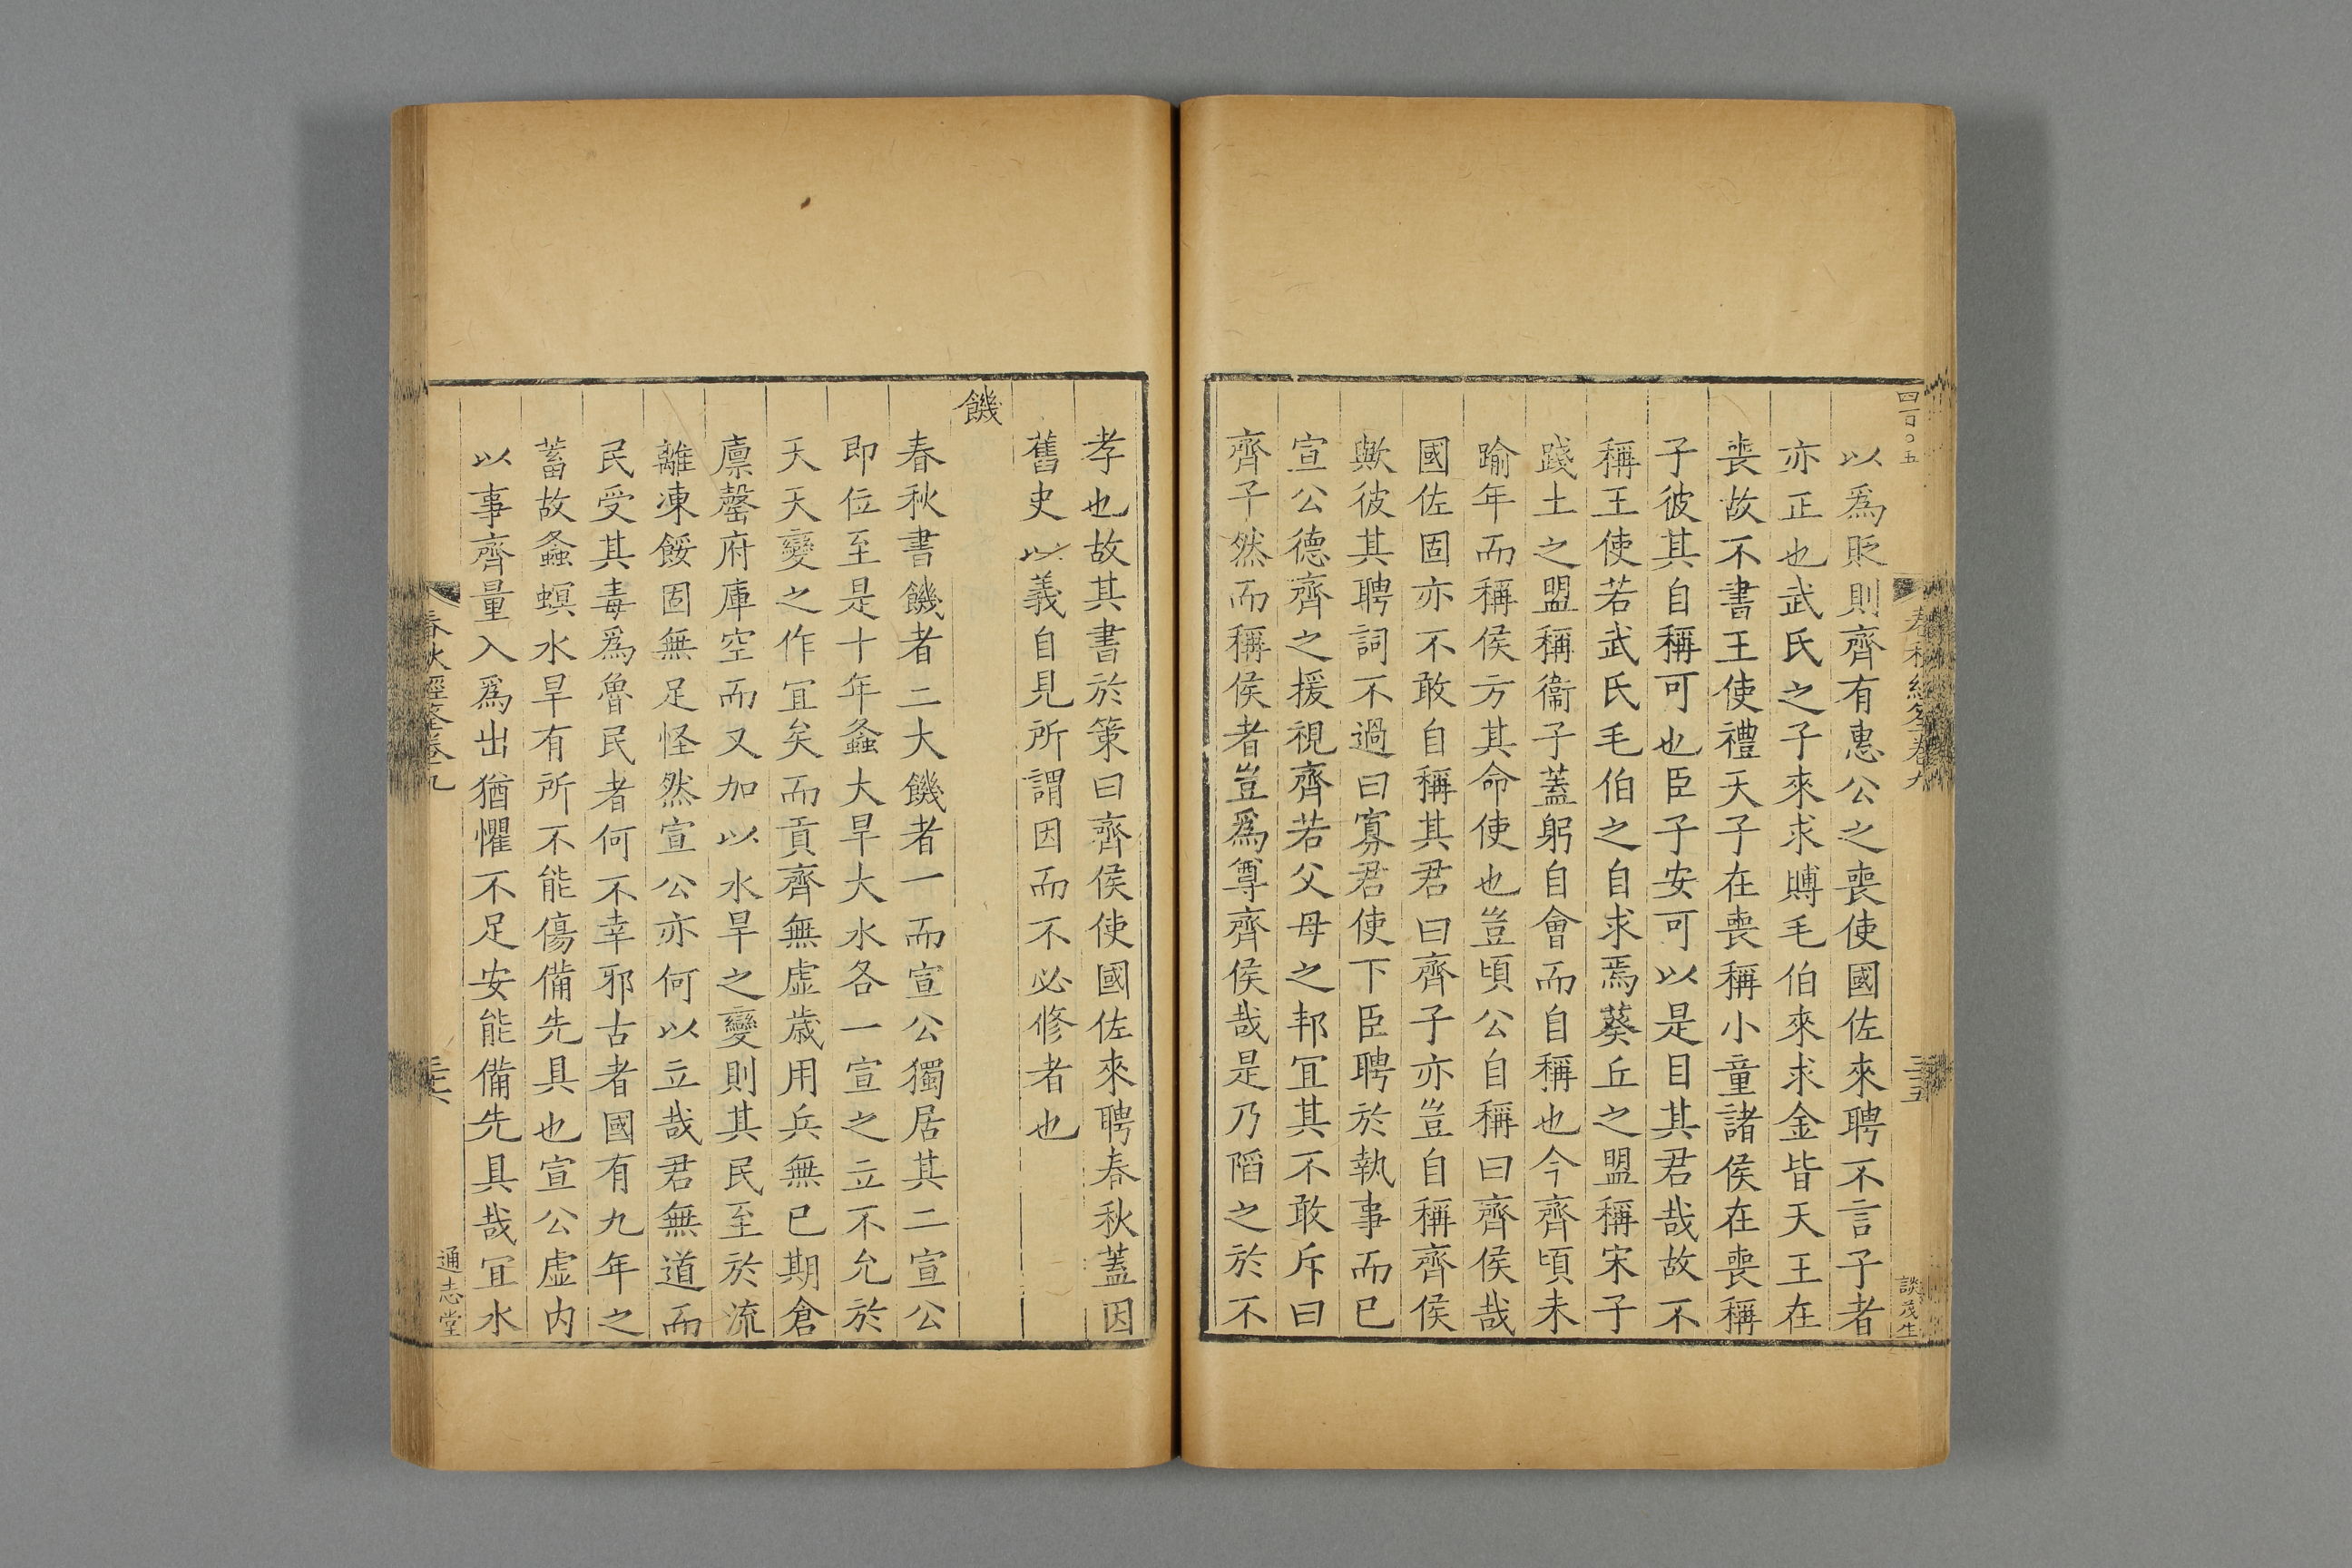 四百〇五
春秋經筌卷九
三五
談茂生
以爲貶則齊有惠公之喪使國佐來聘不言子者
亦正也武氏之子來求賻毛伯來求金皆天王在
喪故不書王使禮天子在喪稱小童諸侯在喪稱
子彼其自稱可也臣子安可以是目其君哉故不
稱王使若武氏毛伯之自求焉葵丘之盟稱宋子
踐土之盟稱衞子蓋躬自會而自稱也今齊頃未
踰年而稱侯方其命使也豈頃公自稱曰齊侯哉
國佐固亦不敢自稱其君曰齊子亦豈自稱齊侯
歟彼其聘詞不過曰寡君使下臣聘於執事而已
宣公德齊之援視齊若父母之邦宜其不敢斥曰
齊子然而稱侯者豈爲尊齊侯哉是乃陷之於不
孝也故其書於策曰齊侯使國佐來聘春秋蓋因
舊史以義自見所謂因而不必修者也
饑
春秋書饑者二大饑者一而宣公獨居其二宣公
即位至是十年螽大旱大水各一宣之立不允於
天天變之作宜矣而貢齊無虛歲用兵無已期倉
廪罄府庫空而又加以水旱之變則其民至於流
離凍餒固無足怪然宣公亦何以立哉君無道而
民受其毒爲魯民者何不幸邪古者國有九年之
蓄故螽螟水旱有所不能傷備先具也宣公虛内
以事齊量入爲出猶懼不足安能備先具哉宜水
春秋經筌卷九
三六
通志堂